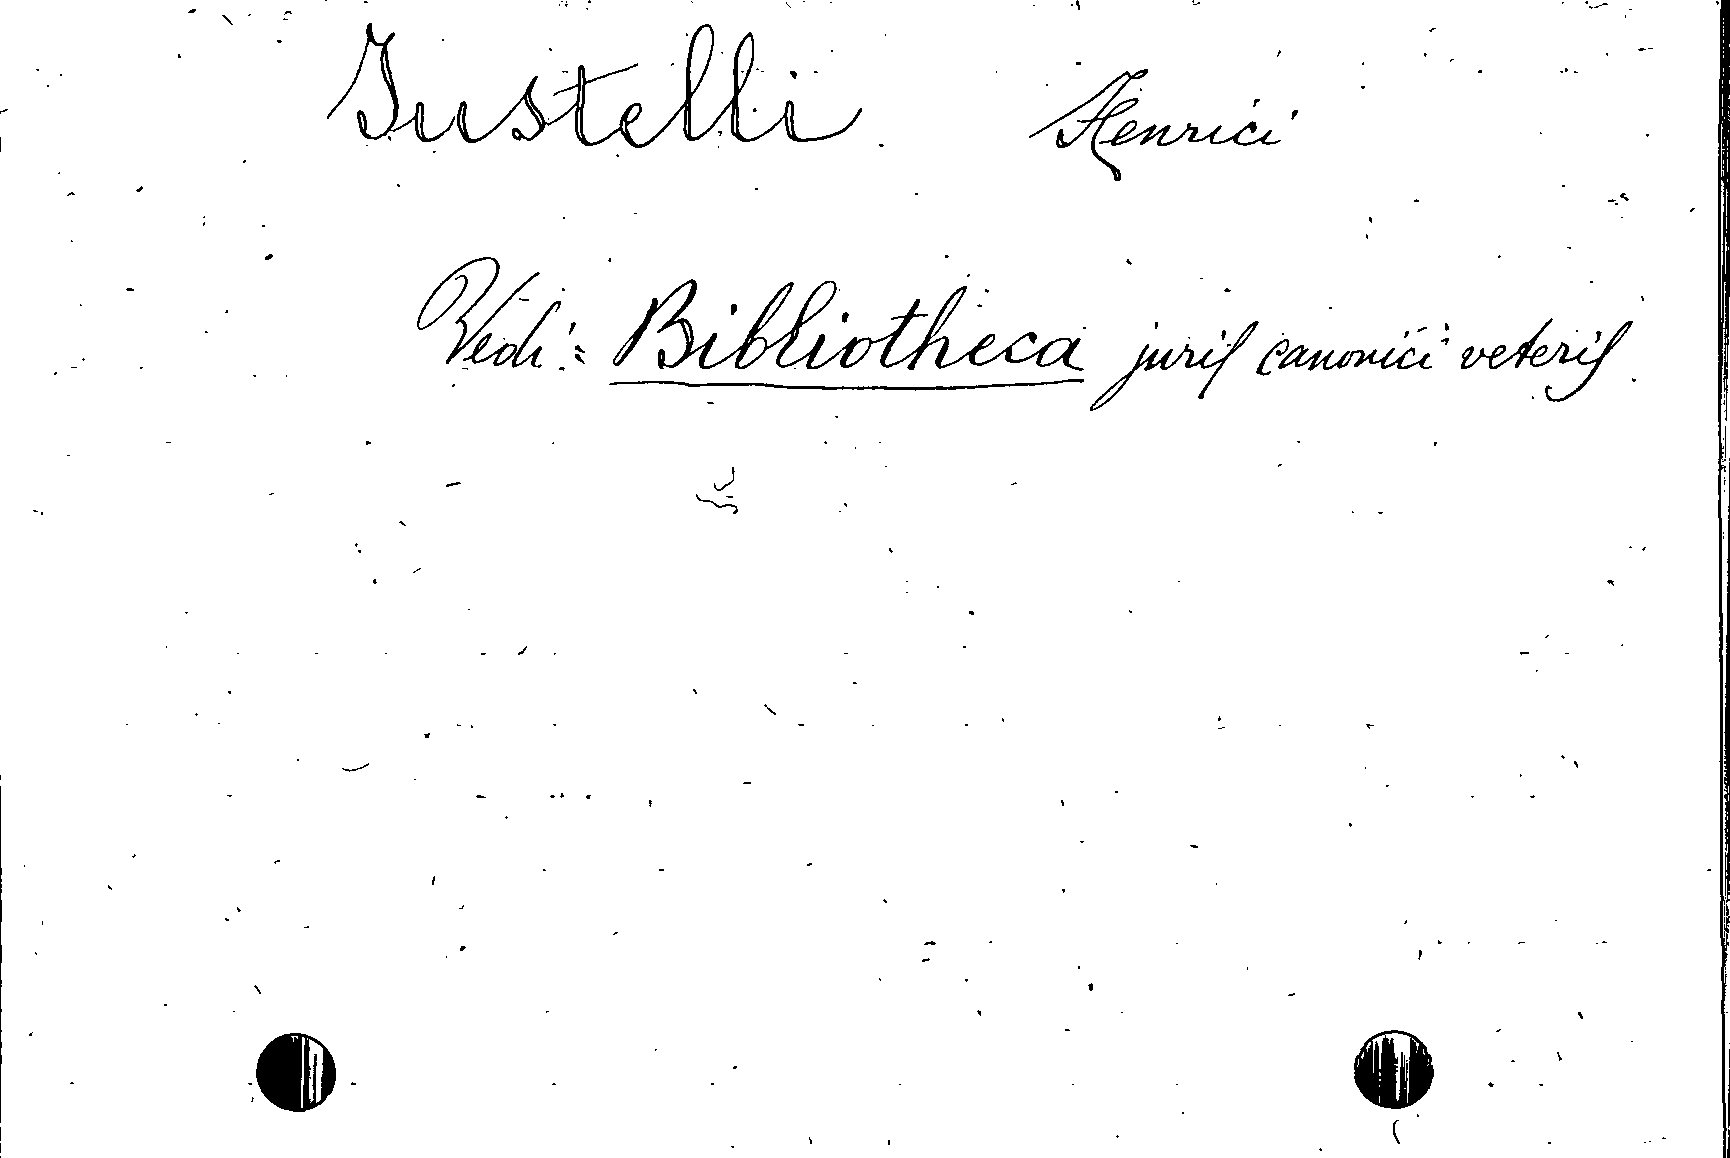 Justelli Henrici
Vedi: Bibliotheca juris canonici veteris